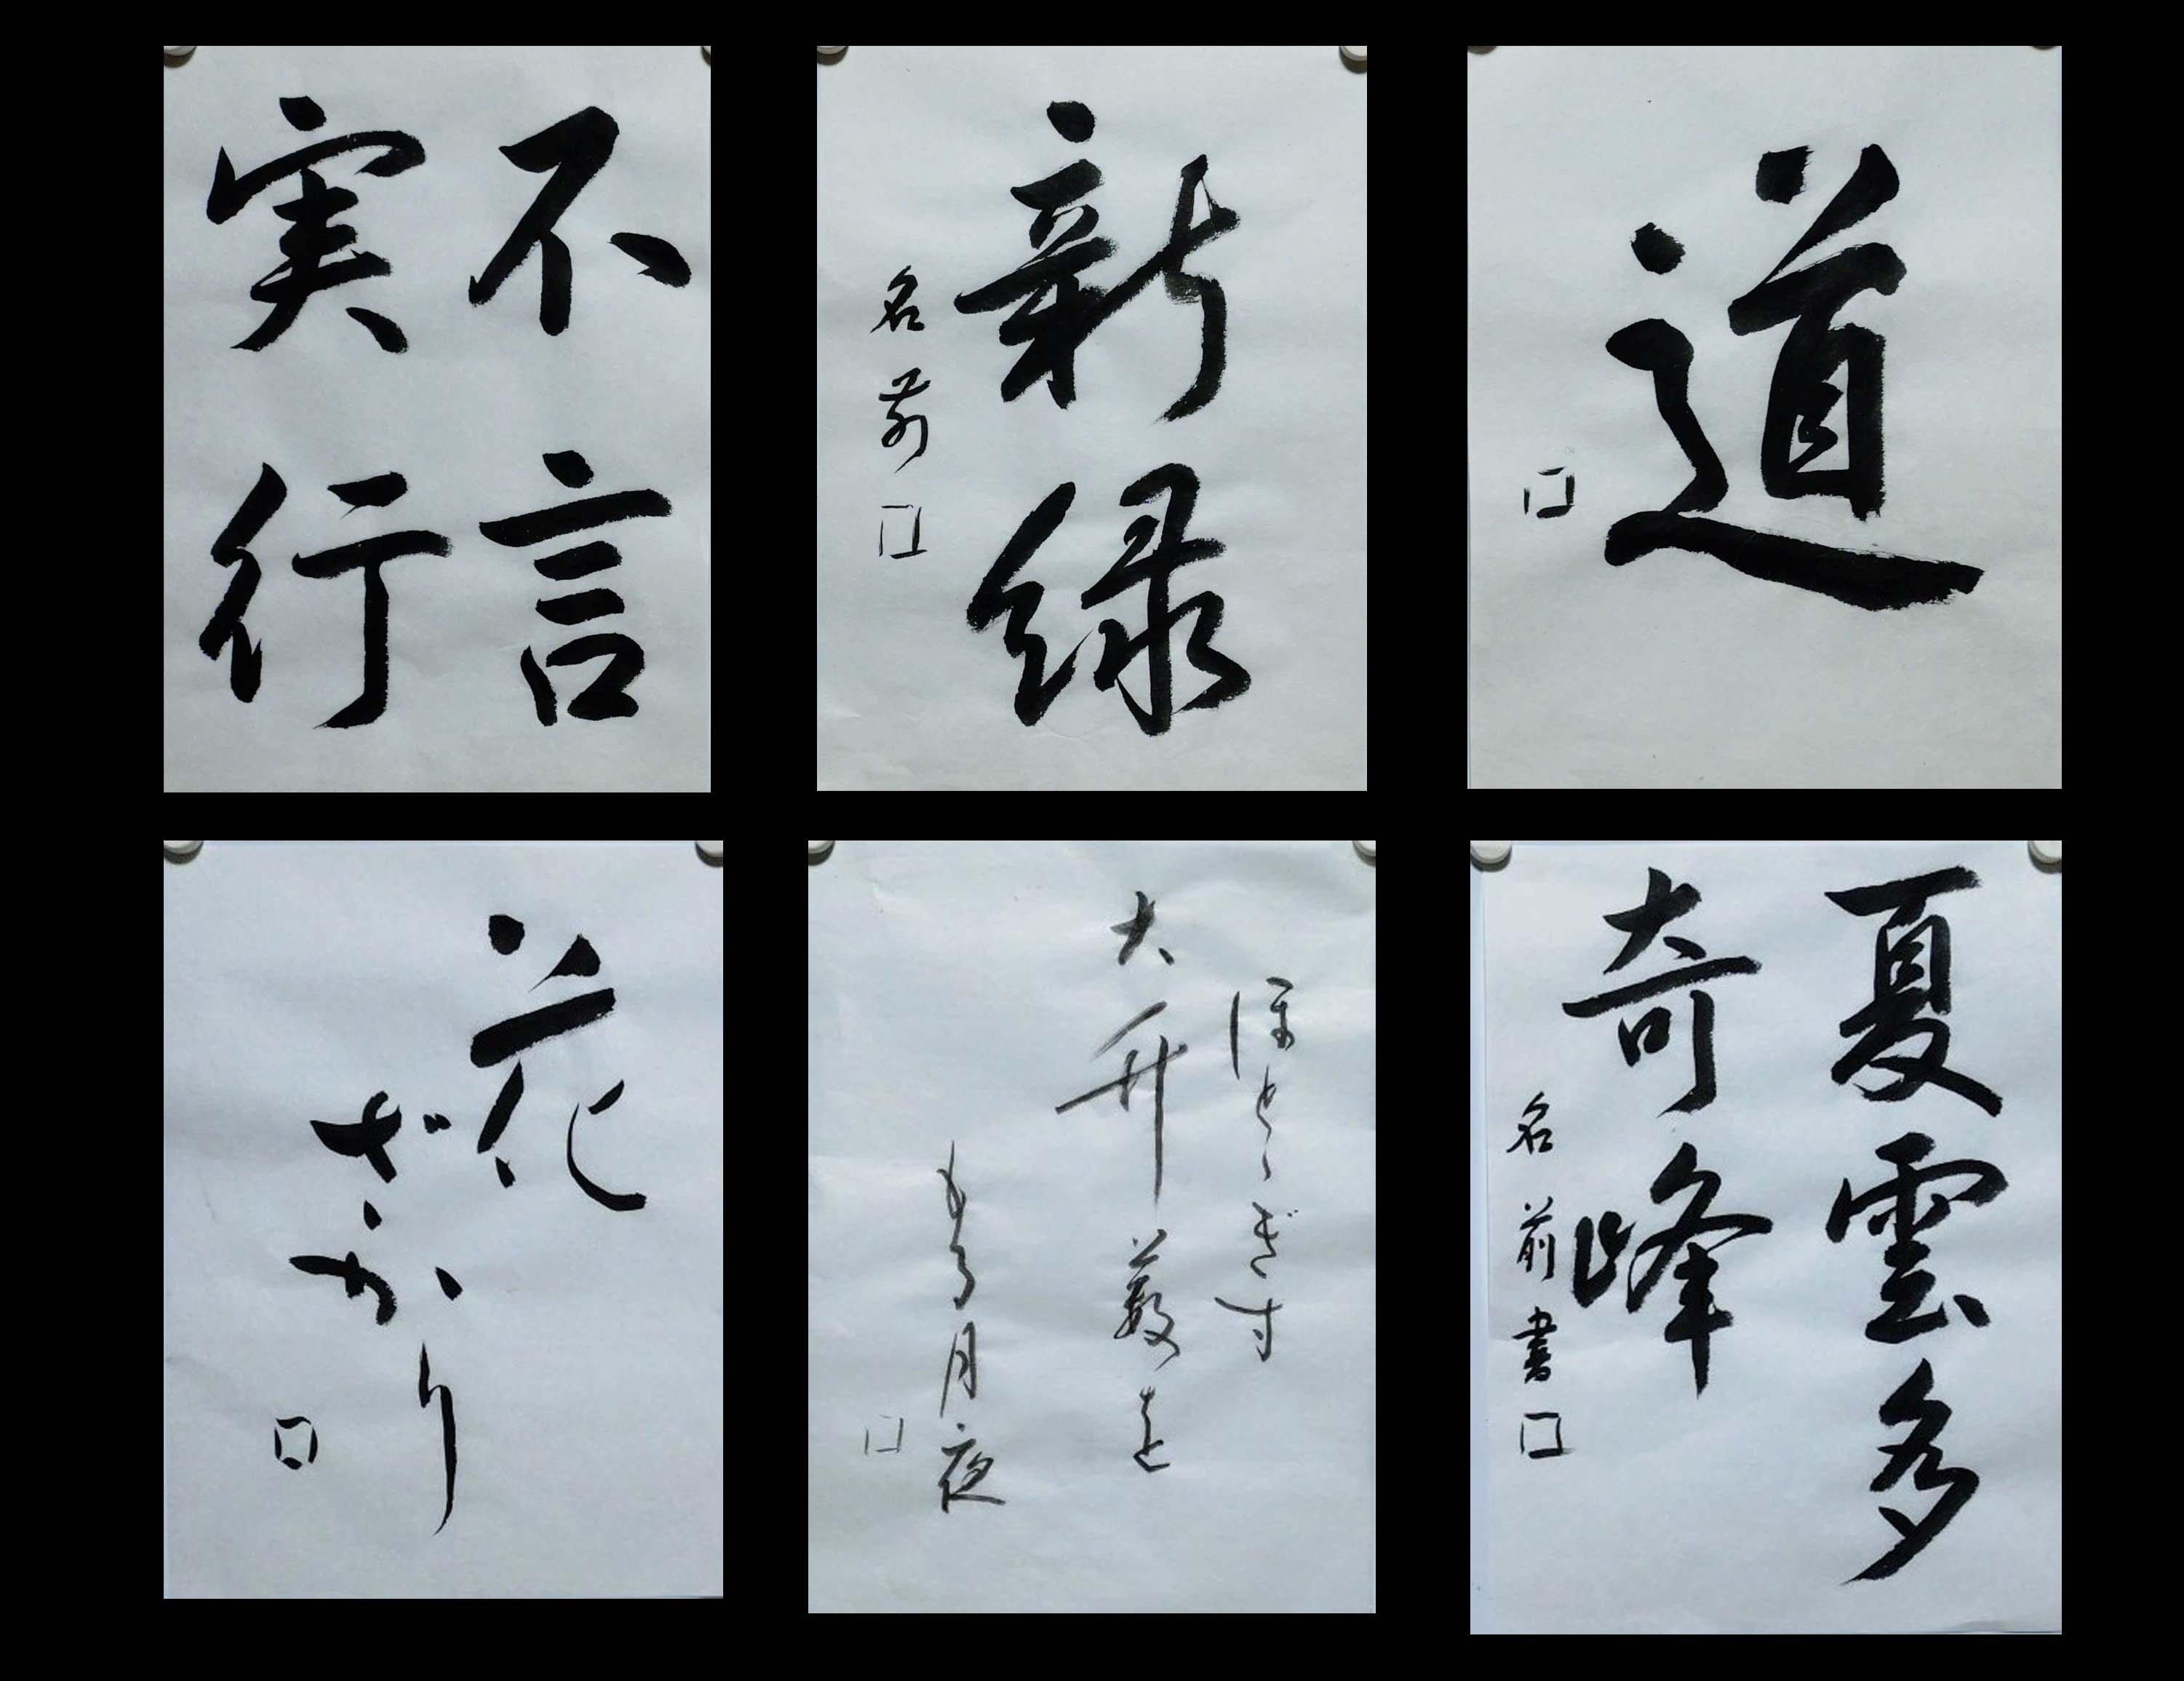 不言
実行
新緑
名前
道
花
ざかり
ほとゝぎす
大竹藪を
もる月夜
夏雲多
奇峰
名前書